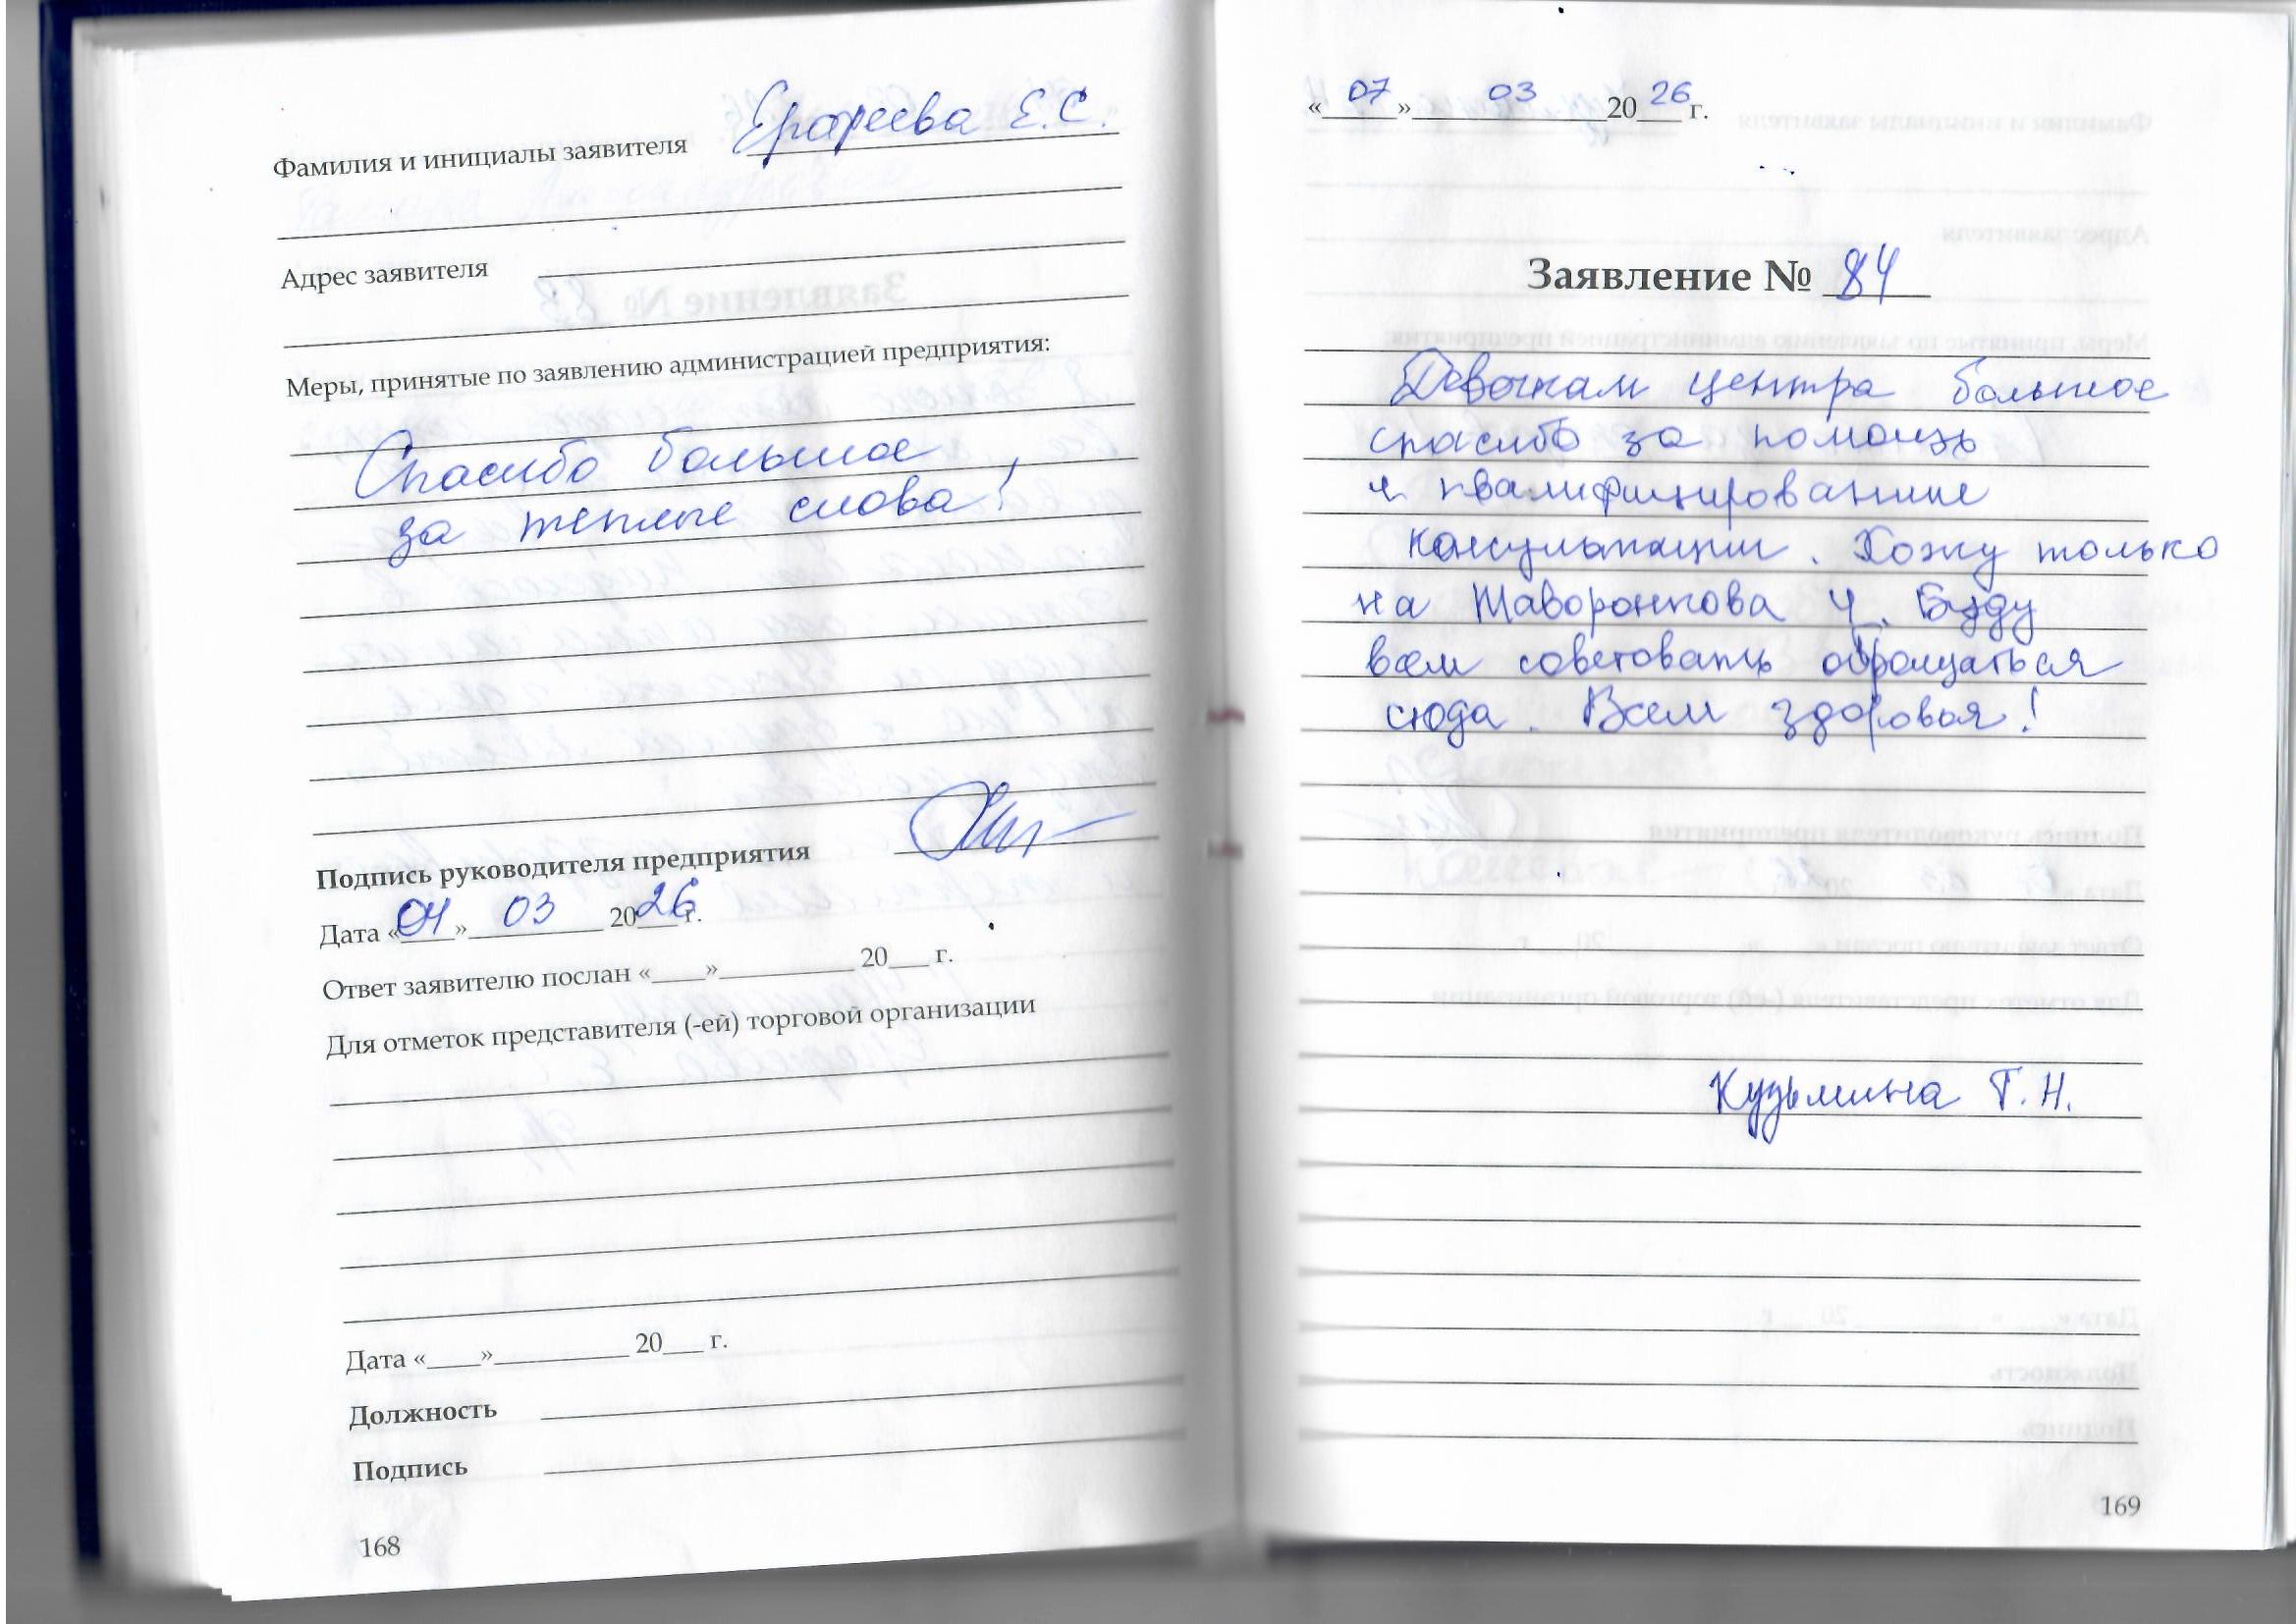 Фамилия и инициалы заявителя Ерофеева Е.С.
Адрес заявителя
Меры, принятые по заявлению администрацией предприятия:
Спасибо большое
за теплые слова!
Подпись руководителя предприятия
Дата «04» 03 2026г.
Ответ заявителю послан «____»__________ 20___ г.
Для отметок представителя (-ей) торговой организации
Дата «____»__________ 20___ г.
Должность
Подпись
168
«07» 03 2026г.
Заявление № 84
Девочкам центра большое
спасибо за помощь
и квалифицированные
консультации. Хожу только
на Жаворонкова 4. Буду
всем советовать обращаться
сюда. Всем здоровья!
Кузьмина Т.Н.
169